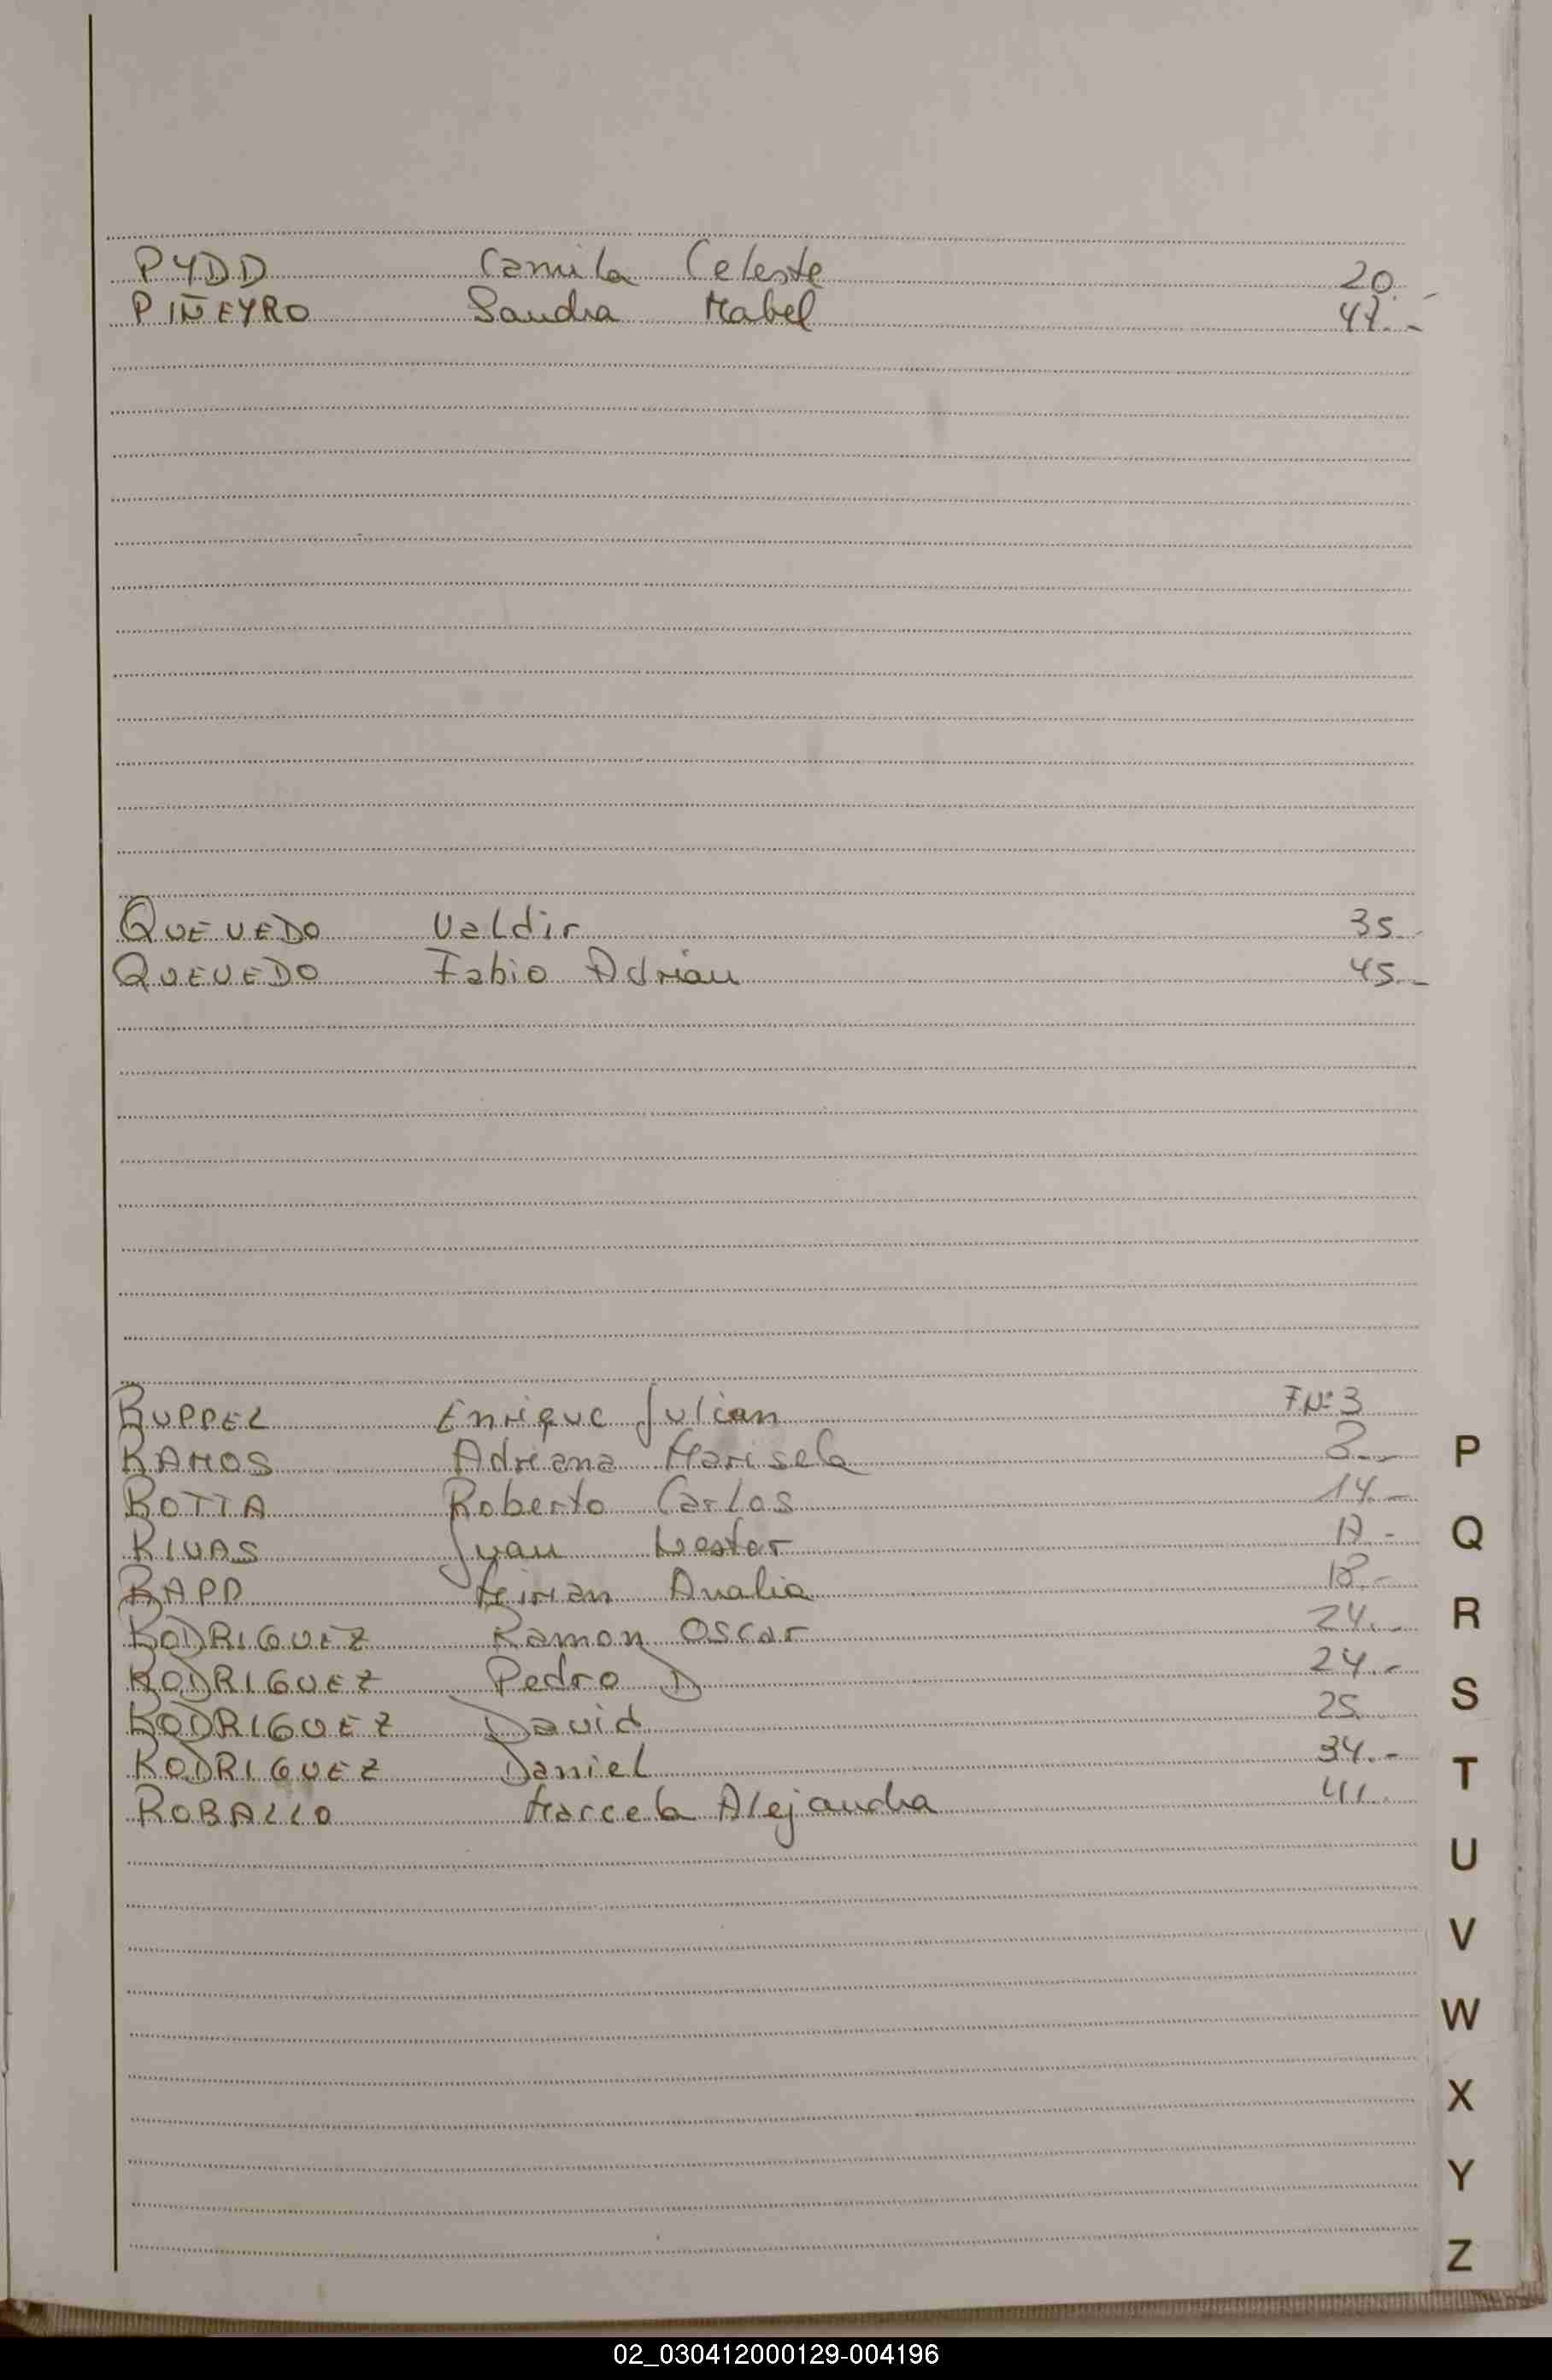 PYDD Camila Celeste 20.-
PIÑEYRO Sandra Mabel 47.-
QUEVEDO Valdir 35.-
QUEVEDO Fabio Adrian 45.-
RUPPEL Enrique Julian FNº 3
RAMOS Adriana Marisela 3.-
P
ROTTA Roberto Carlos 14.-
RIVAS Juan Nestor 17.-
Q
RAPP Mirian Analia 18.-
RODRIGUEZ Ramon Oscar 24.-
R
RODRIGUEZ Pedro D 24.-
RODRIGUEZ David 25.
S
RODRIGUEZ Daniel 34.-
T
ROBALLO Marcela Alejandra 41.-
U
V
W
X
Y
Z
02_030412000129-004196